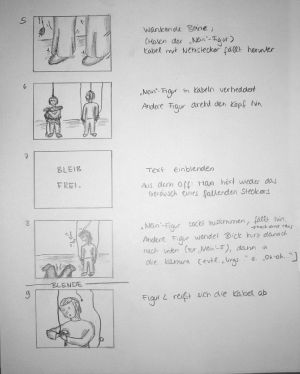 5
Wankende Beine,
(Hosen der „Nein"-Figur)
Kabel mit Netzstecker fällt herunter
6
„Nein"-Figur in Kabeln verheddert
Andere Figur dreht den Kopf hin
7
BLEIB
FREI.
Text einblenden
Aus dem Off: Man hört wieder das
Geräusch eines fallenden Steckers
8
„Nein"-Figur sackt zusammen, fällt hin.
Andere Figur wendet Blick kurz danach
nach unten (zur „Nein"-F), dann in
die Kamera
BLENDE
9
Figur 2 reißt sich die Kabel ab